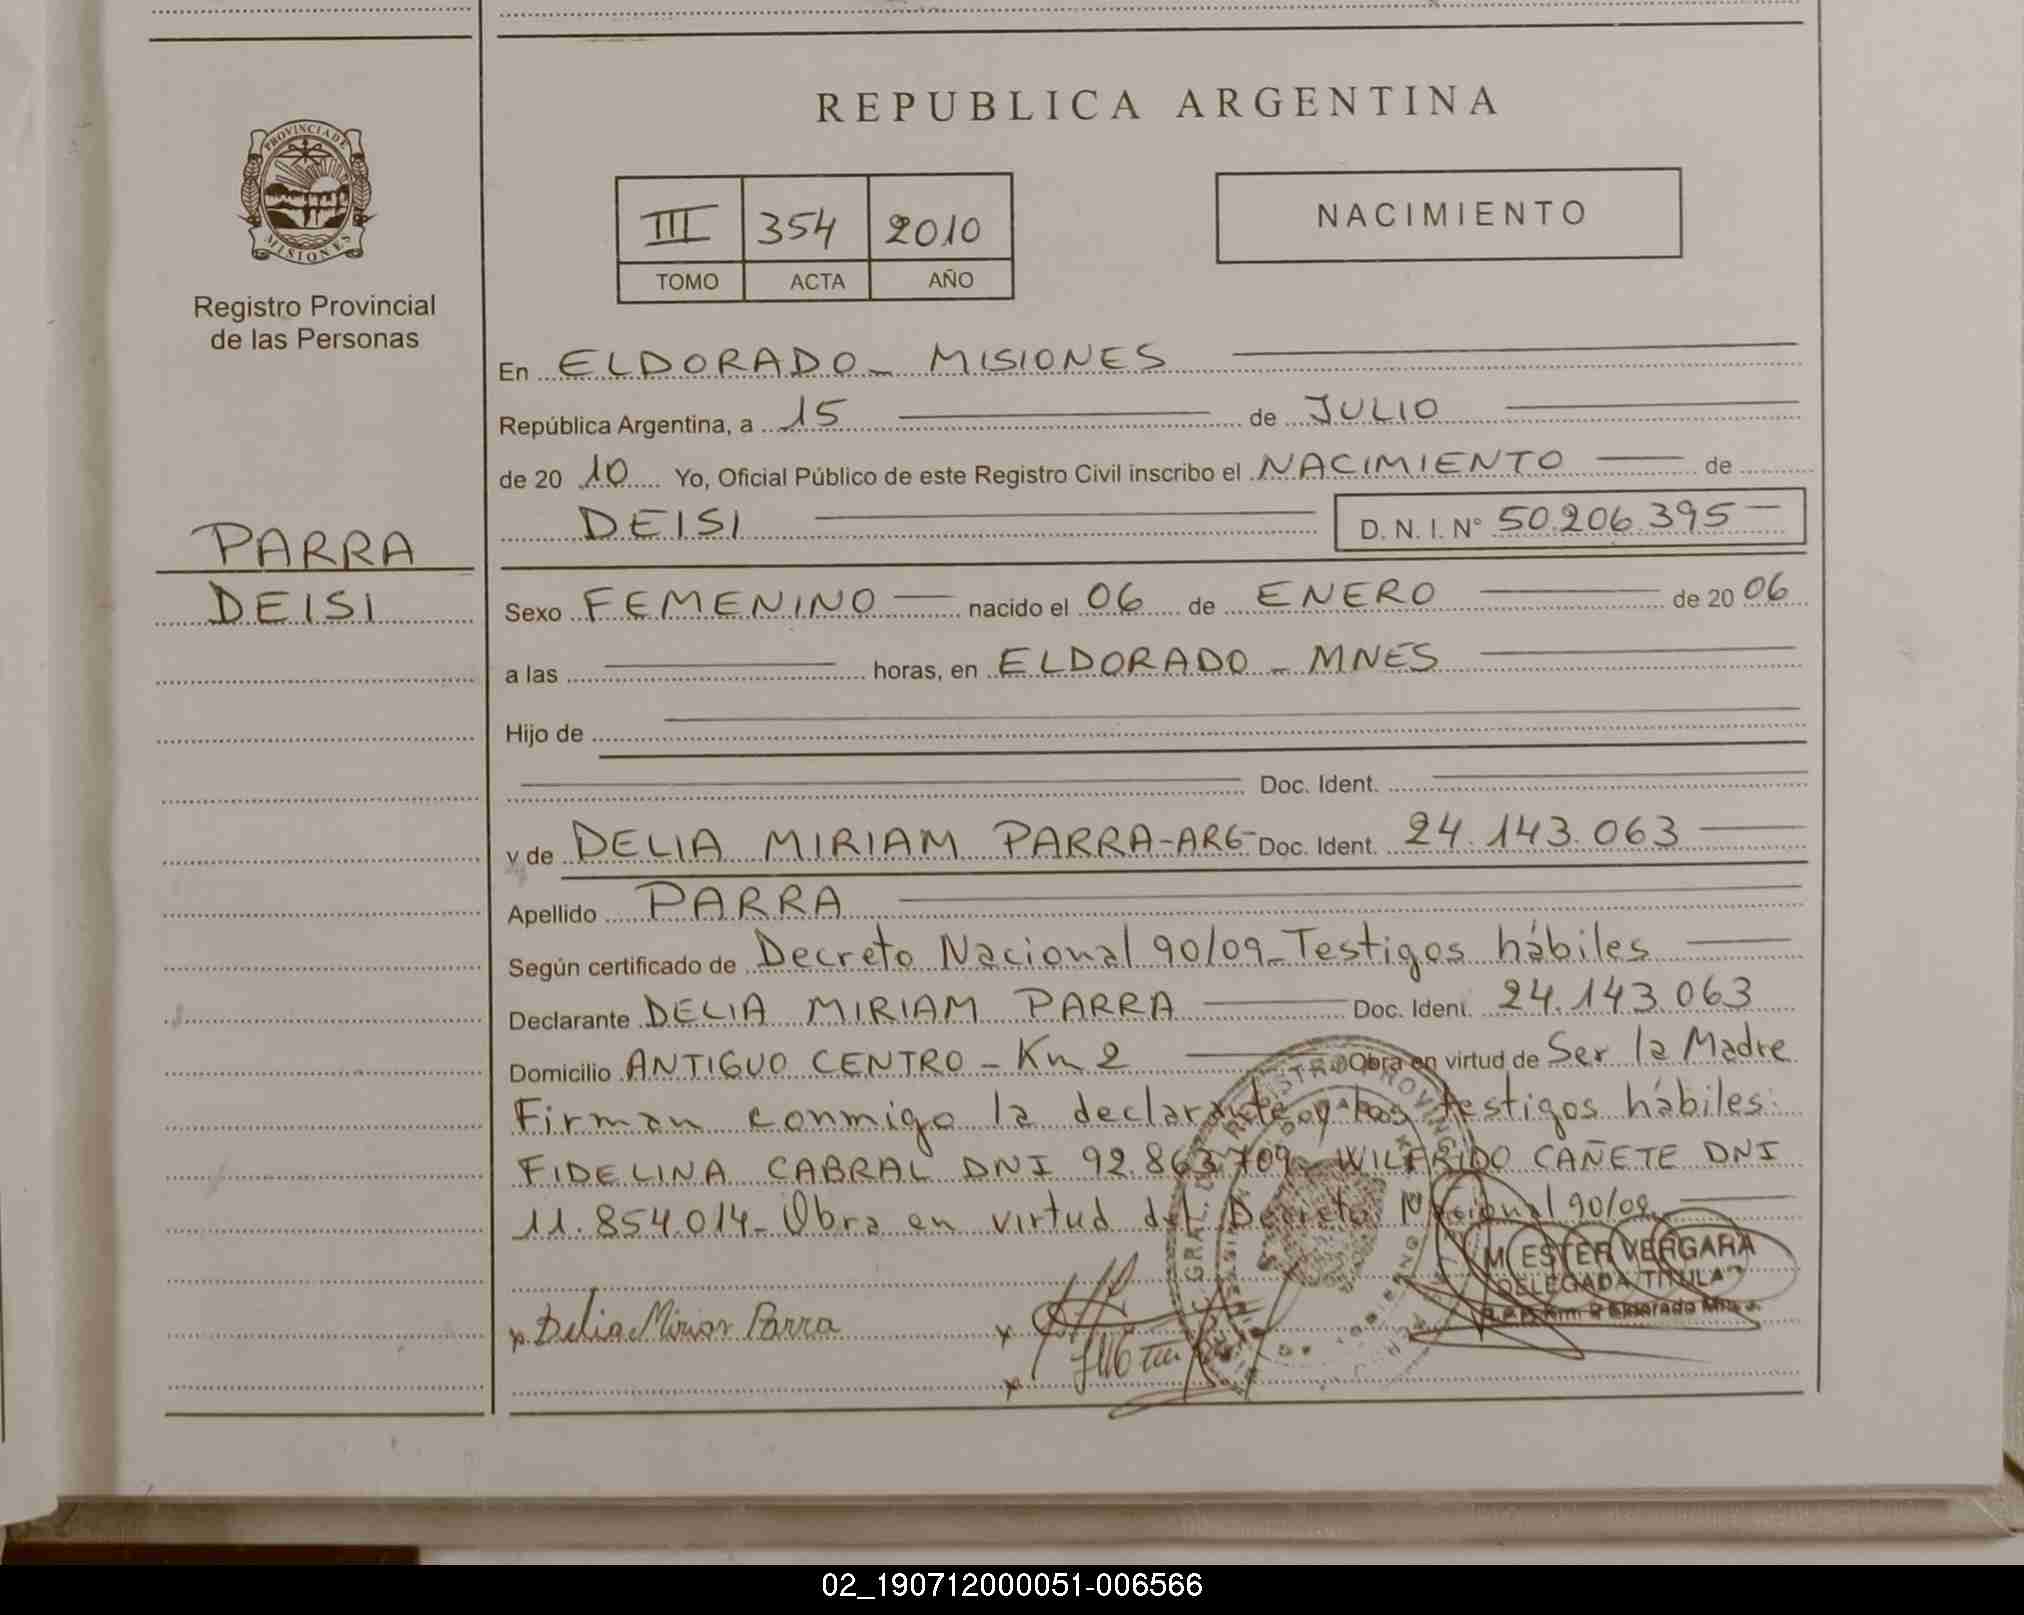 REPUBLICA ARGENTINA
PROVINCIA DE
MISIONES
Registro Provincial
de las Personas
III 354 2010
TOMO ACTA AÑO
NACIMIENTO
En ELDORADO_ MISIONES
República Argentina, a 15 de JULIO
de 20 10 Yo, Oficial Público de este Registro Civil inscribo el NACIMIENTO de
DEISI D. N. I. N° 50.206.395
PARRA
DEISI
Sexo FEMENINO nacido el 06 de ENERO de 20 06
a las horas, en ELDORADO _ MNES
Hijo de
Doc. Ident.
y de DELIA MIRIAM PARRA-ARG- Doc. Ident. 24.143.063
Apellido PARRA
Según certificado de Decreto Nacional 90/09_Testigos hábiles
Declarante DELIA MIRIAM PARRA Doc. Ident. 24.143.063
Domicilio ANTIGUO CENTRO - Km 2 Obra en virtud de Ser la Madre
Firman conmigo la declarante y los testigos hábiles:
FIDELINA CABRAL DNI 92.863.709- WILFRIDO CAÑETE DNI
11.854.014- Obra en virtud del Decreto Nacional 90/09
M ESTER VERGARA
DELEGADA TITULAR
x Delia Miriam Parra x
x
02_190712000051-006566